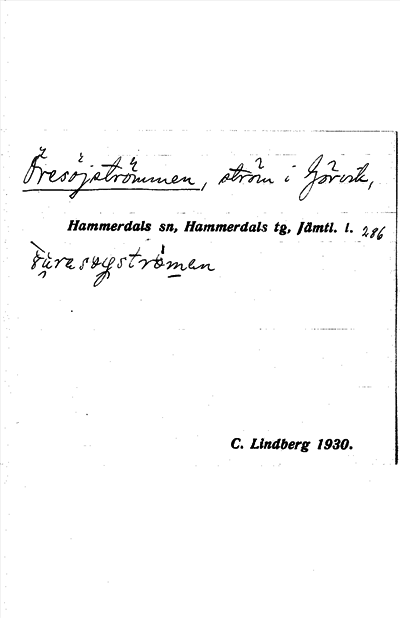 Öresöjströmmen, ström i Görvik,
Hammerdals sn, Hammerdals tg, Jämtl. l. 286
C. Lindberg 1930.